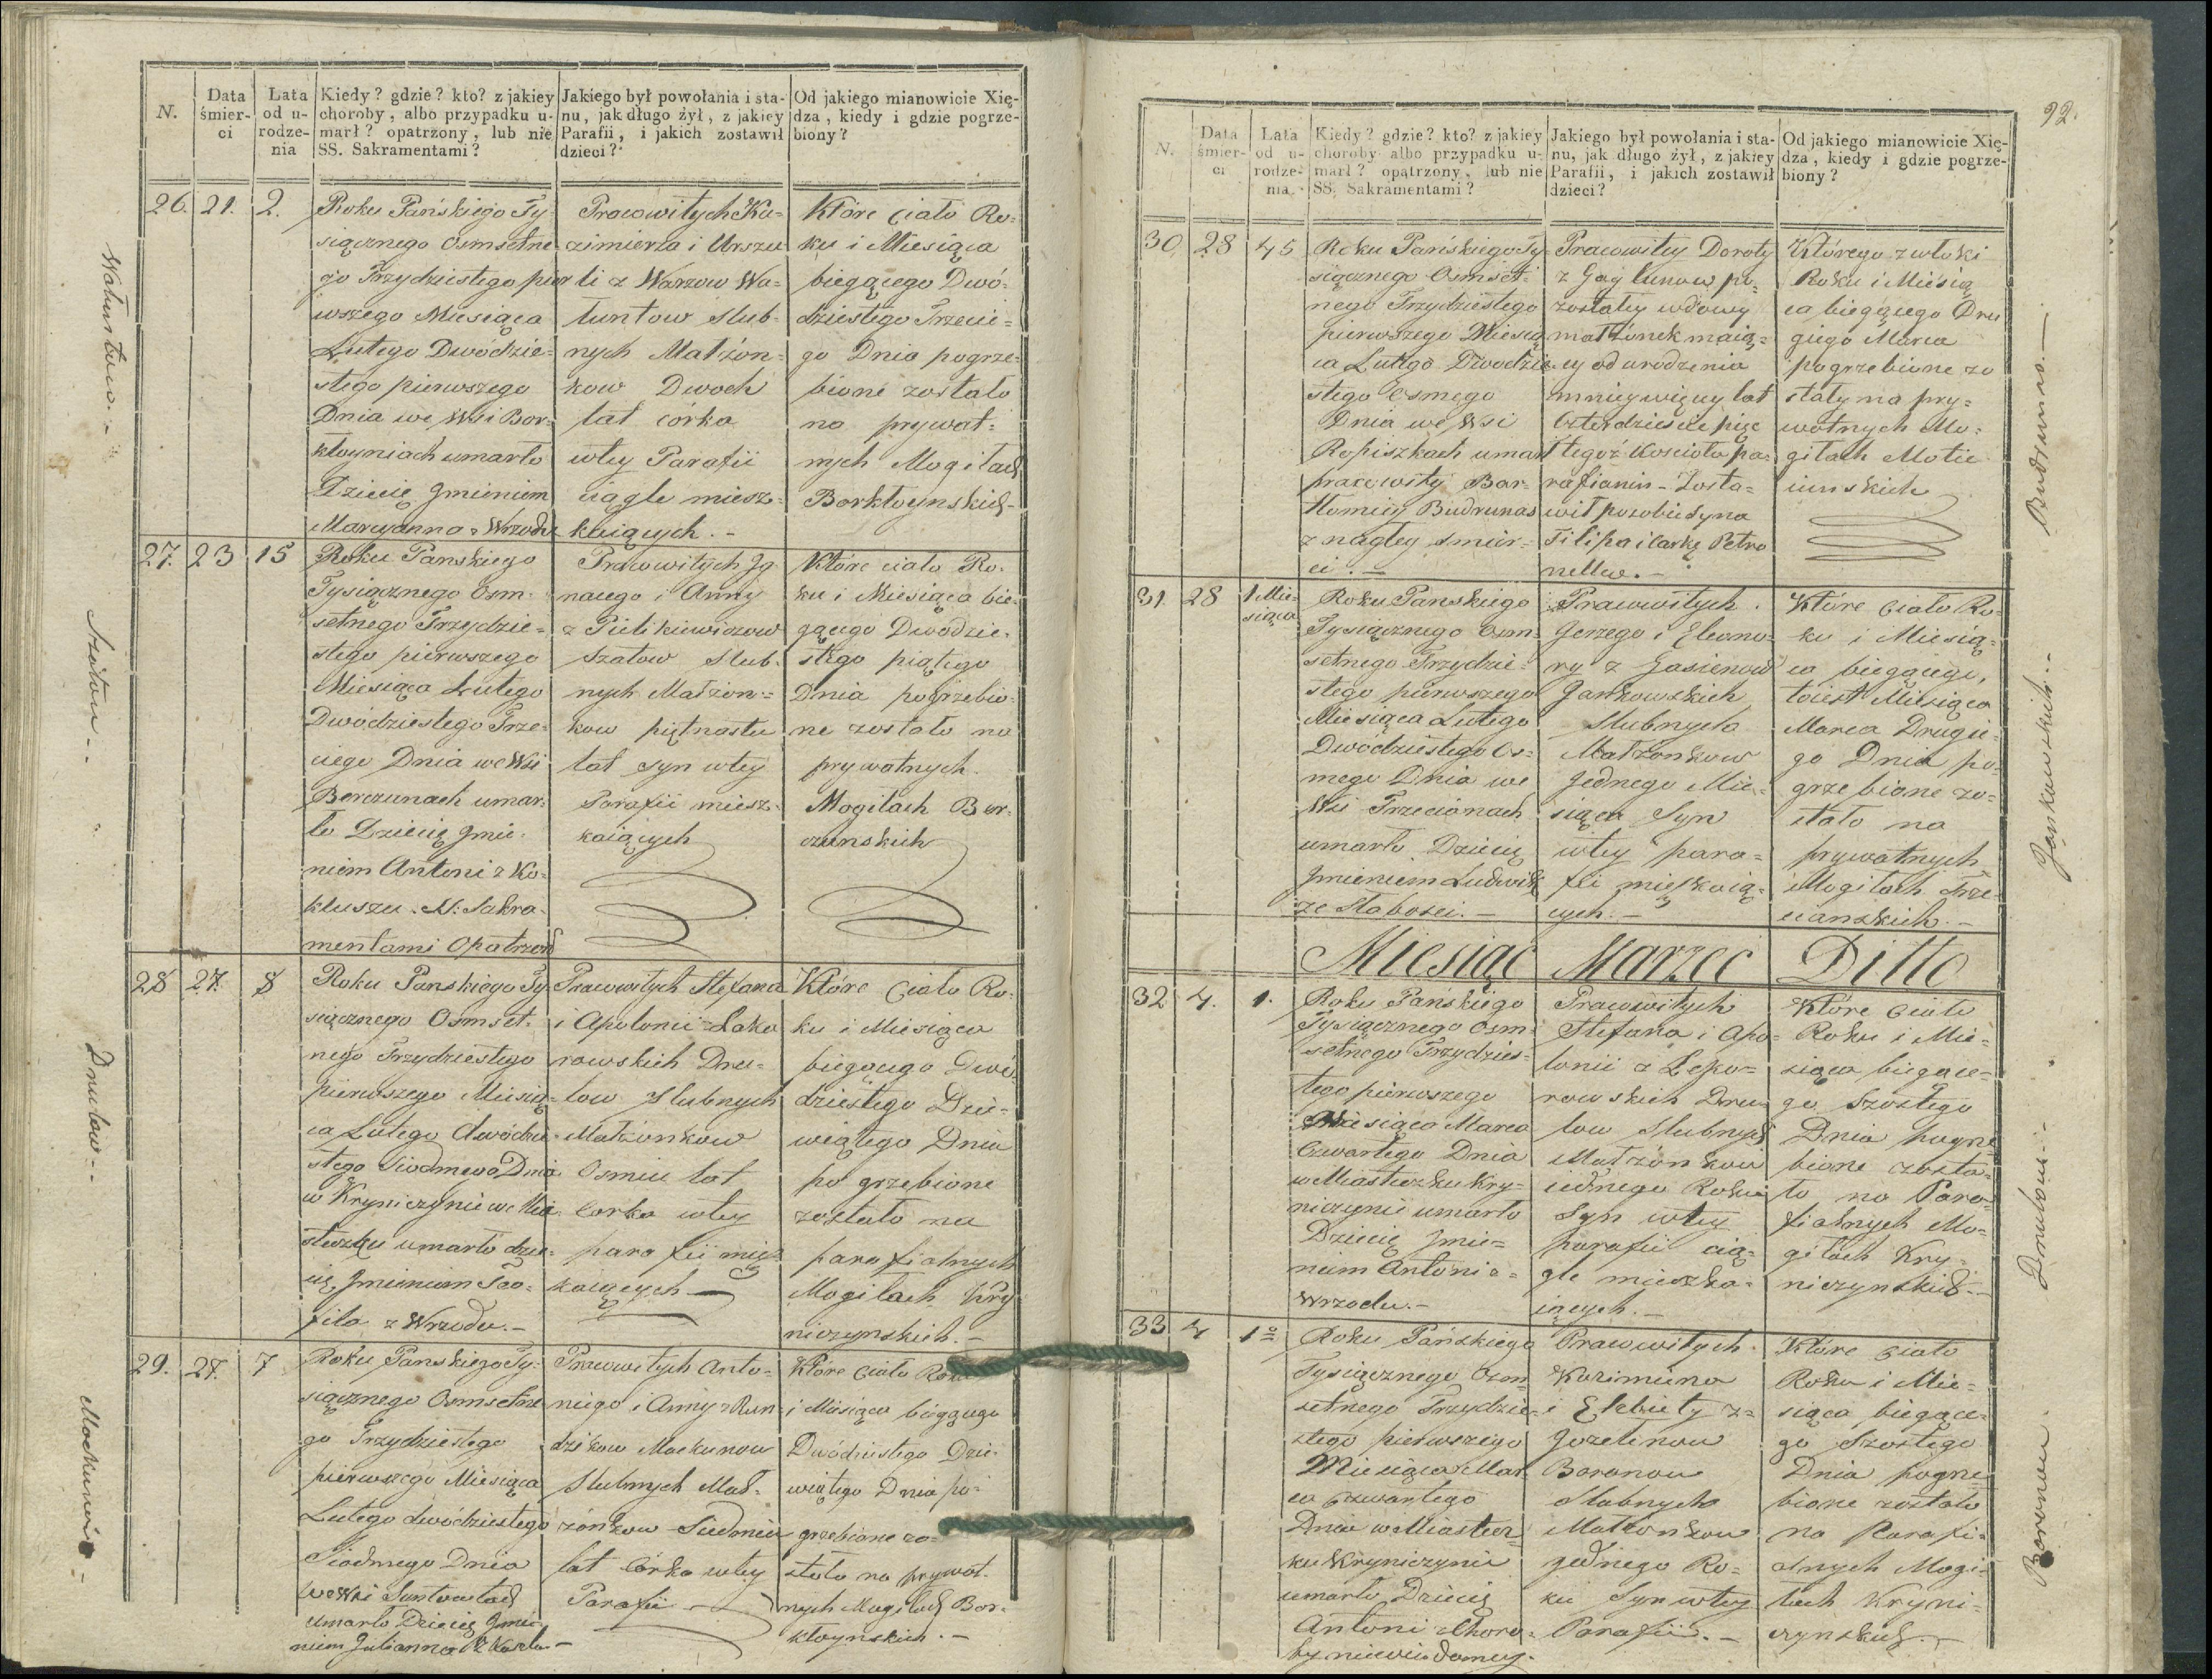 N.
Data śmier-ci
Lata od u-rodze-nia
Kiedy? gdzie? kto? z jakiey
choroby, albo przypadku u-
marł? opatrzony, lub nie
SS. Sakramentami?
Jakiego był powołania i sta-
nu, jak długo żył, z jakiey
Parafii, i jakich zostawił
dzieci?
Od jakiego mianowicie Xię-
dza, kiedy i gdzie pogrze-
biony?
26. 21. 2.
Roku Pańskiego Ty-
siącznego Osmsetne
go Trzydziestego pier
wszego Miesiąca
Lutego Dwódzie-
stego pierwszego
Dnia we Wsi Bor-
kłoyniach umarło
Dziecię Jmieniem
Maryanna z Wrzodu
Pracowitych Ka-
zimierza i Urszu
li z Warzow Wa-
tuntow Slub-
nych Małżon-
kow Dwoch
lat córka
wtey Parafii
ciągle miesz-
kaiących.-
Które Ciało Ro-
ku i Miesiąca
biegącego Dwó-
dziestego Trzecie-
go Dnia pogrze-
bione zostało
na prywat-
nych Mogiłach
Borkłoynskich-
Watuntow.-
27. 23 15
Roku Panskiego
Tysiącznego Osm-
setnego Trzydzie-
stego pierwszego
Miesiąca Lutego
Dwódziestego Trze-
ciego Dnia we Wsi
Berczunach umar-
ło Dziecię Jmie-
niem Antoni z Ko-
kluszu. N: Sakra-
mentami Opatrzon
Pracowitych Jg-
nacego i Anny
z Pietkiewiczow
Szatow Slub-
nych Małżon-
kow piętnastu
lat syn wtey
Parafii miesz-
kaiących
Które ciało Ro-
ku i Miesiąca bie-
gącego Dwódzie-
stego piątego
Dnia pogrzebio-
ne zostało na
prywatnych
Mogiłach Ber-
czunskich
Szatow.-
28 27. 8
Roku Panskiego Ty
siącznego Osmset-
nego Trzydziestego
pierwszego Miesią-
ca Lutego dwódzie-
stego Siodmego Dnia
w Kryniczynie we Mia-
steczku umarło dzie-
cię Jmieniem Teo-
fila z Wrzodu.-
Pracowitych Stefana
i Apolonii z Laka
rowskich Dru-
low Slubnych
Małżonkow
Osmiu lat
Corka wtey
parafii miesz
kaiących
Które Ciało Ro-
ku i Miesiąca
biegącego Dwó-
dziestego Dzie-
wiątego Dnia
pogrzebione
zostało na
parafialnych
Mogiłach Kry
niczynskich.-
Drulow.-
29. 27. 7
Roku Panskiego Ty-
siącznego Osmsetne
go Trzydziestego
pierwszego Miesiąca
Lutego dwódziestego
Siodmego Dnia
we Wsi
umarło Dziecię Jmie-
niem Julianna z Kaszlu-
Pracowitych Anto-
niego i Anny z Run-
dzikow Mackunow
Slubnych Mał-
żonkow Siedmiu
lat Córka wtey
Parafii -
Które Ciało Roku
i Miesiąca biegącego
Dwódziestego Dzie-
wiątego Dnia po-
grzebione zo-
stało na prywat-
nych Mogiłach Bor-
kłoynskich.-
Mackunow.-
92.
N.
Data śmier-ci
Lata od u-rodze-nia
Kiedy? gdzie? kto? z jakiey
choroby albo przypadku u-
marł? opatrzony, lub nie
SS. Sakramentami?
Jakiego był powołania i sta-
nu, jak długo żył, z jakiey
Parafii, i jakich zostawił
dzieci?
Od jakiego mianowicie Xię-
dza, kiedy i gdzie pogrze-
biony?
30 28 45
Roku Pańskiego Ty-
siącznego Osmset-
nego Trzydziestego
pierwszego Miesią
ca Lutego Dwodzie-
stego Osmego
Dnia we Wsi
Ropiszkach umarł
pracowity Bar-
tłomiey Budrunas
z nagłey smier-
ci.-
Pracowitey Doroty
z Gaylunow po-
zostałey wdowy
małżonek maią-
cy od urodzenia
mniey więcey lat
Czterdziescie pięc
tegoż Koscioła pa-
rafianin - Zosta-
wił po sobie Syna
Filipa i Corkę Petro
nellę.-
Którego zwłoki
Roku i Miesią
ca biegącego Dru
giego Marca
pogrzebione zo
stały na pry-
watnych Mo-
giłach
Budrunas.-
31. 28 1. Mie-siąca
Roku Panskiego
Tysiącznego Osm-
setnego Trzydzie-
stego pierwszego
Miesiąca Lutego
Dwódziestego Os-
mego Dnia we
Wsi Trzecianach
umarło Dziecię
Jmieniem Ludwik
ze Słabosci.-
Pracowitych
Jerzego i Eleono-
ry z Gasienow
Jankowskich
Slubnych
Małżonkow
Jednego Mie-
siąca Syn
wtey para-
fii mieszkaią-
cych.-
Które Ciało Ro-
ku i Miesią-
ca biegącego,
toiest Miesiąca
Marca Drugie-
go Dnia po-
grzebione zo-
stało na
prywatnych
Mogiłach Trze-
cianskich.-
Jankowskich.-
Miesiąc Marzec Ditto
32 4. 1.
Roku Pańskiego
Tysiącznego Osm-
setnego Trzydzies-
tego pierwszego
Miesiąca Marca
Czwartego Dnia
w Miasteczku Kry-
niczynie umarło
Dziecię Jmie-
niem Antoni z-
Wrzodu.-
Pracowitych
Stefana i Apo-
lonii z Leka-
rowskich Dru-
low Slubnych
Małżonkow
iednego Roku
Syn wtey
parafii cią-
gle mieszka-
iących.-
Które Ciało
Roku i Mie-
siąca biegące-
go Szostego
Dnia pogrze
bione zosta-
ło na Para-
fialnych Mo-
giłach Kry-
niczynskich.-
Drulow.-
33 4 1o
Roku Pańskiego
Tysiącznego Osm-
setnego Trzydzie-
stego pierwszego
Miesiąca Mar-
ca Czwartego
Dnia w Miastecz
ku Kryniczynie
umarło Dziecię
Antoni z Choro-
by niewiadomey.
Pracowitych
Kazimierza
i Elżbiety z-
Jozelinow
Baranow
Slubnych
Małżonkow
Jednego Ro-
ku Syn wtey
Parafii.-
Które Ciało
Roku i Mie-
siąca biegące-
go Szostego
Dnia pogrze
bione zostało
na Parafi-
alnych Mogi-
łach Kryni-
czynskich.-
Baranow.